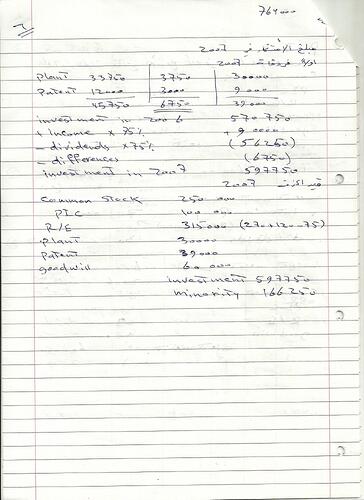 764000
مبلغ الاستثمار في 2007
اولا فروقات 2007
plant 33750 3750 30000
Patent 12000 3000 9000
45750 6750 39000
investment in 2006 570 750
+ Income x 75% + 90000
- dividends x 75% (56250)
- differences (6750)
investment in 2007 597750
2007
Common Stock 250 000
PIC 100 000
R/E 315000 (270+120-75)
plant 30000
Patent 39000
goodwill 60 000
investment 597750
minority 166250